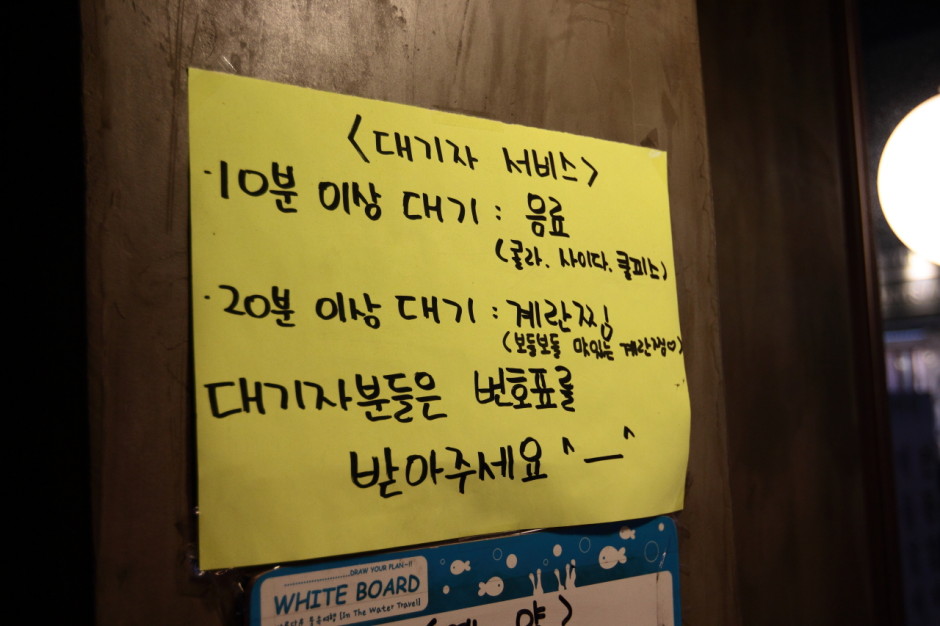 <대기자 서비스>
·10분 이상 대기 : 음료
(콜라. 사이다. 쿨피스)
·20분 이상 대기 : 계란찜
(보들보들 맛있는 계란찜♡)
대기자분들은 번호표를
받아주세요 ^ー^
DRAW YOUR PLAN~!!
WHITE BOARD
(In The Water Travel)